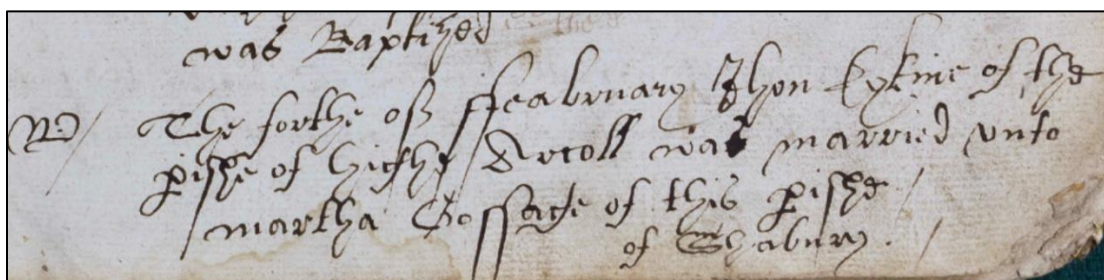 was Baptized
The forthe of ffeabruary Jhon Eykine of the
pishe of highe Arcoll was married unto
martha Gossage of this pishe
of Shabury.